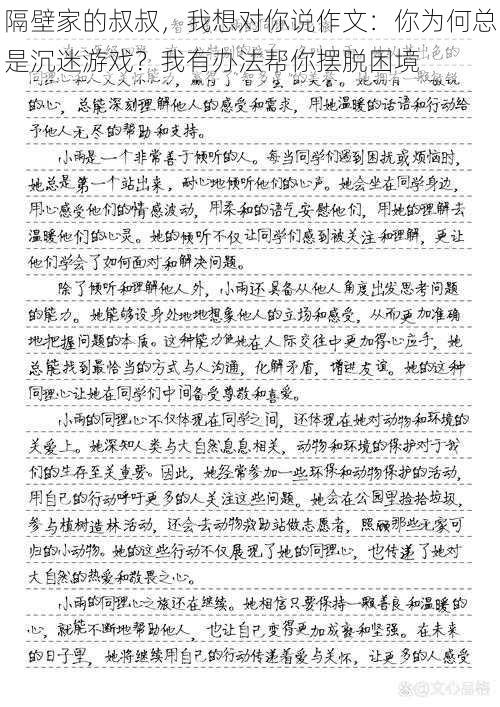 隔壁家的叔叔，我想对你说作文：你为何总
是沉迷游戏？我有办法帮你摆脱困境
同理心和人文关怀能力，赢得了“智多星”的美誉。她拥有一颗敏锐
的心，总能深刻理解他人的感受和需求，用她温暖的话语和行动给
予他人无尽的帮助和支持。
小雨是一个非常善于倾听的人。每当同学们遇到困扰或烦恼时，
她总是第一个站出来，耐心地倾听他们的心声。她会坐在同学身边，
用心感受他们的情感波动，用柔和的语气安慰他们，用她的理解去
温暖他们的心灵。她的倾听不仅让同学们感到被关注和理解，更让
他们学会了如何面对和解决问题。
除了倾听和理解他人外，小雨还具备从他人角度出发思考问题
的能力。她能够设身处地地想象他人的立场和感受，从而更加准确
地把握问题的本质。这种能力使她在人际交往中更加得心应手，她
总能找到最恰当的方式与人沟通，化解矛盾，增进友谊。她的这种
同理心让她在同学们中间备受尊敬和喜爱。
小雨的同理心不仅体现在同学之间，还体现在她对动物和环境的
关爱上。她深知人类与大自然息息相关，动物和环境的保护对于我
们的生存至关重要。因此，她经常参加一些环保和动物保护的活动，
用自己的行动呼吁更多的人关注这些问题。她会在公园里捡拾垃圾，
参与植树造林活动，还会去动物救助站做志愿者，照顾那些无家可
归的小动物。她的这些行动不仅展现了她的同理心，也传递了她对
大自然的热爱和敬畏之心。
小雨的同理心之旅还在继续。她相信只要保持一颗善良和温暖的
心，就能不断地帮助他人，也让自己变得更加成熟和坚强。在未来
的日子里，她将继续用自己的行动传递着爱与关怀，让更多的人感受
文心品格